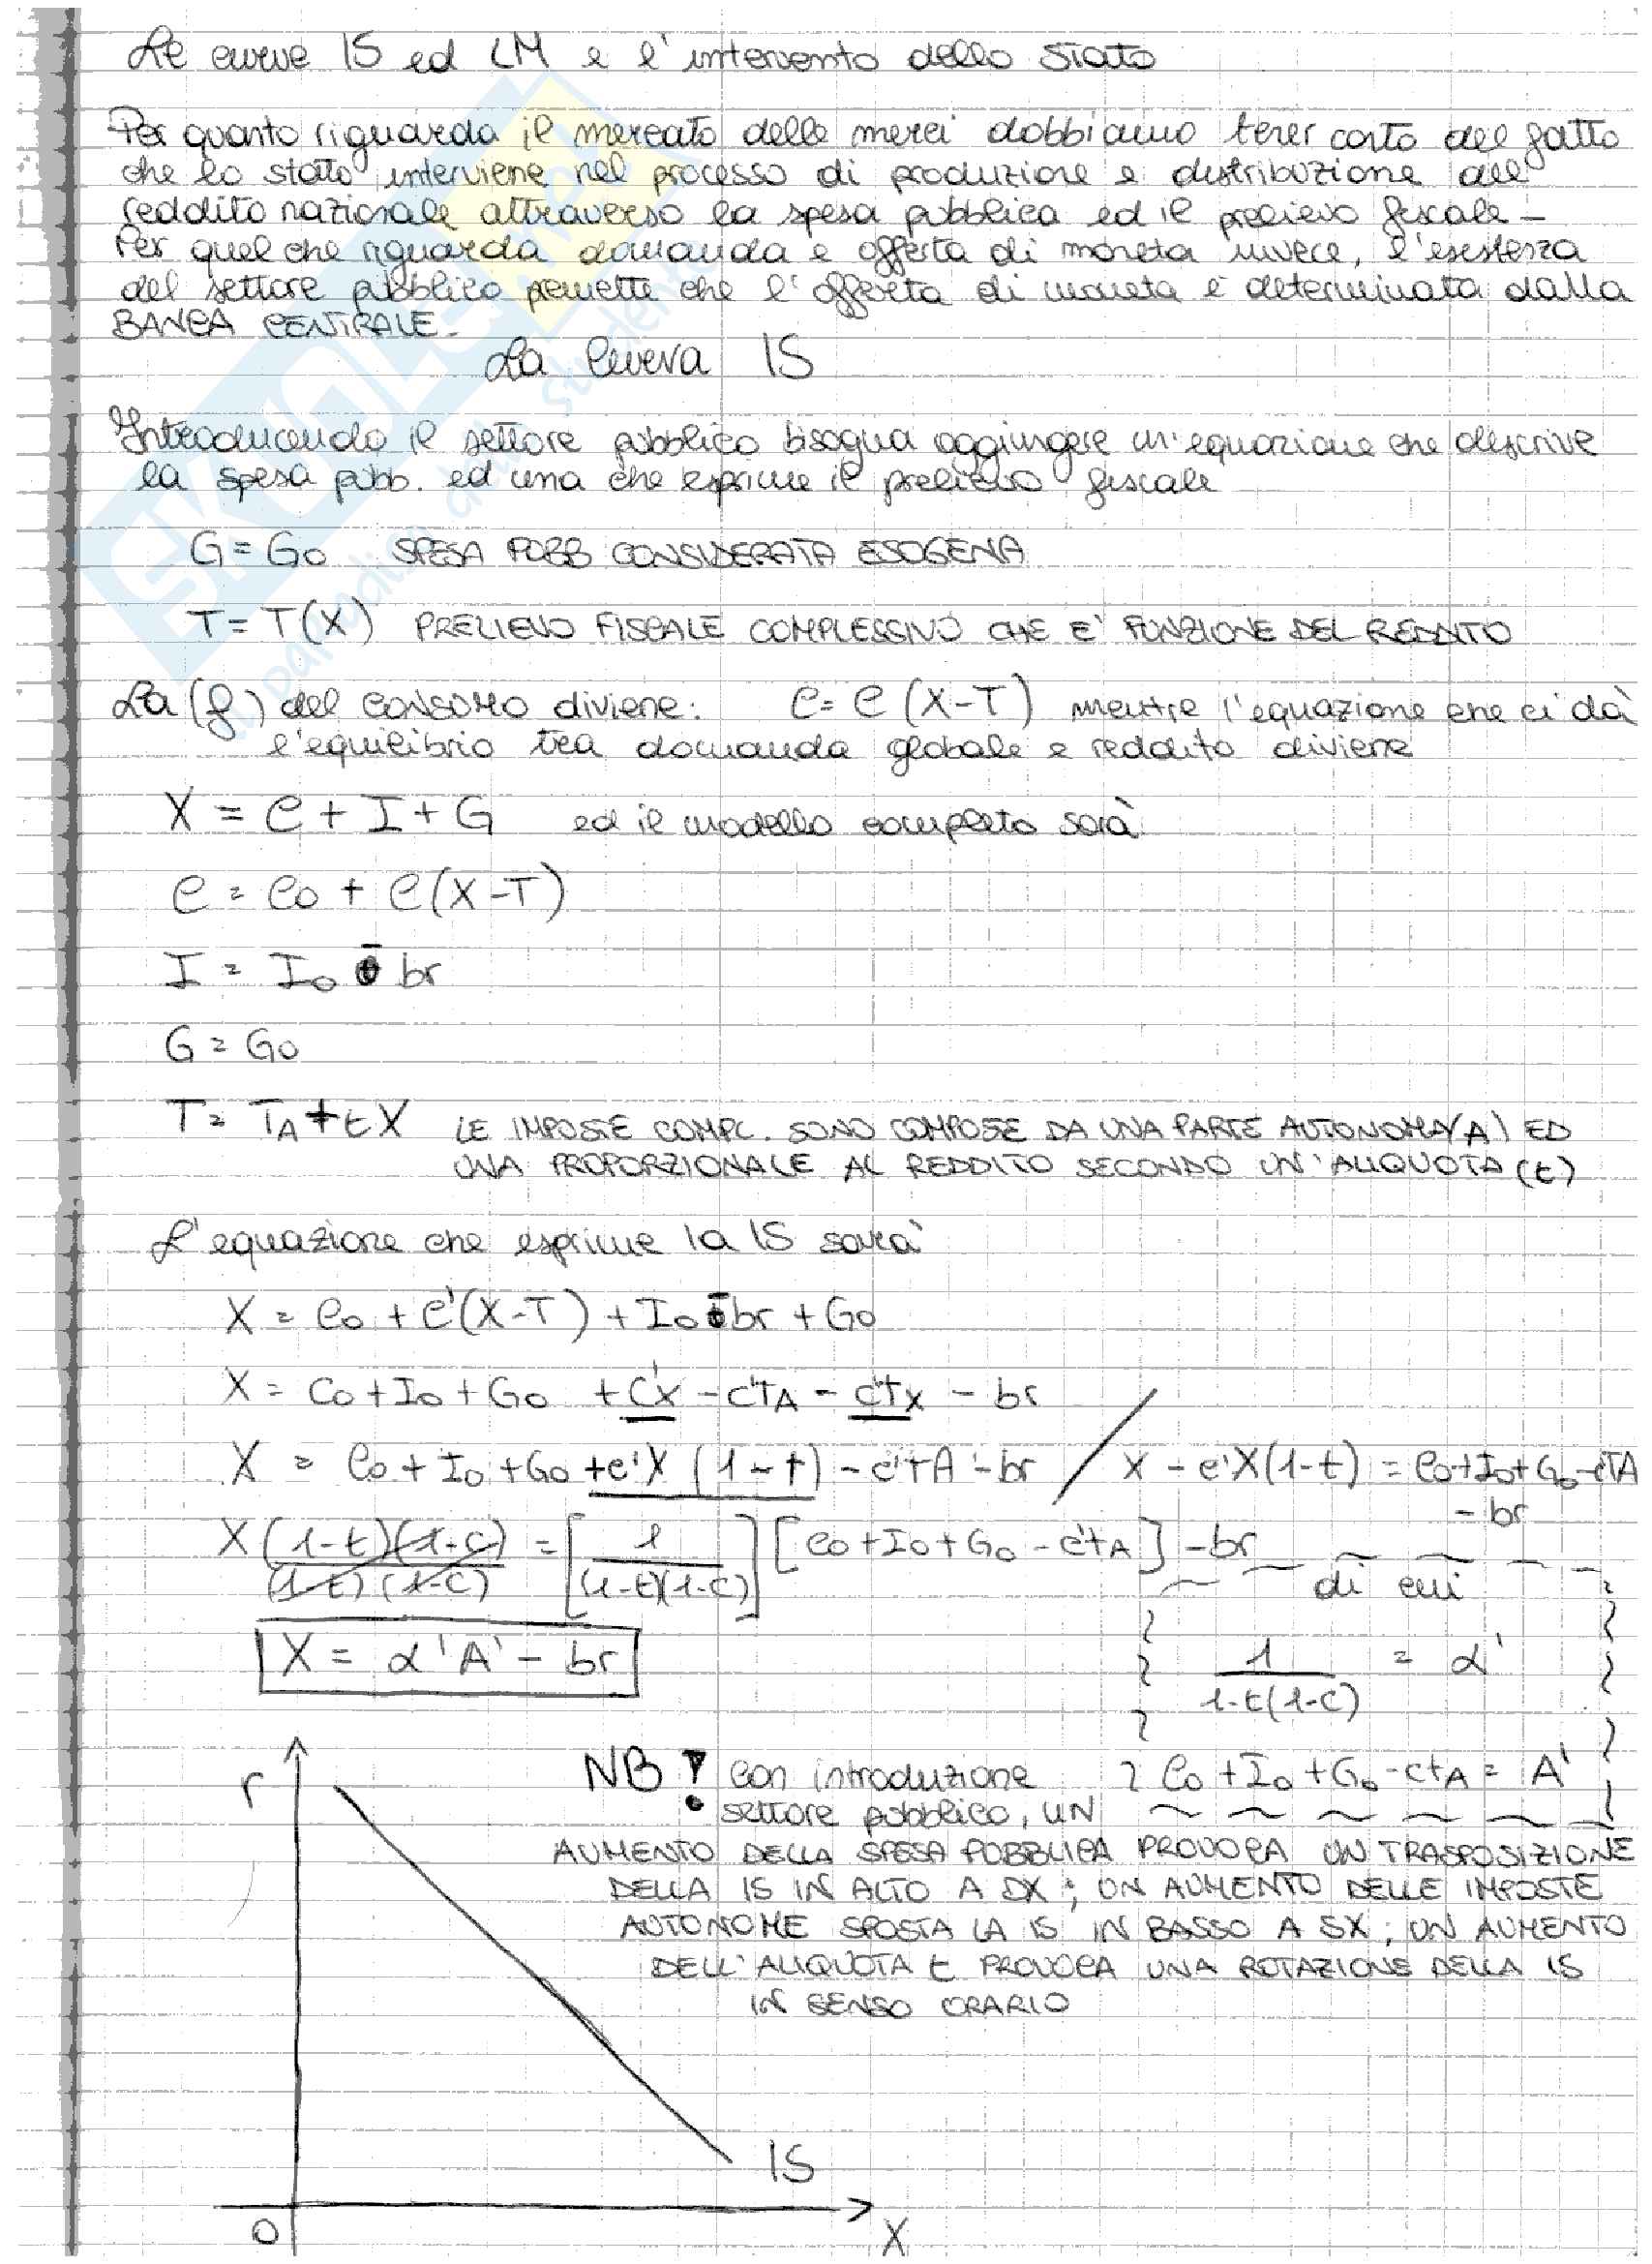 Le curve IS ed LM e l'intervento dello Stato
Per quanto riguarda il mercato delle merci dobbiamo tener conto del fatto
che lo stato interviene nel processo di produzione e distribuzione del
reddito nazionale attraverso la spesa pubblica ed il prelievo fiscale -
Per quel che riguarda domanda e offerta di moneta invece, l'esistenza
del settore pubblico premette che l'offerta di moneta è determinata dalla
BANCA CENTRALE -
La Curva IS
Introducendo il settore pubblico bisogna aggiungere un'equazione che descrive
la spesa pubb. ed una che esprime il prelievo fiscale
G = G0 SPESA PUBB CONSIDERATA ESOGENA
T = T(X) PRELIEVO FISCALE COMPLESSIVO CHE E' FUNZIONE DEL REDDITO
La (f) del CONSUMO diviene: C = C (X-T) mentre l'equazione che ci dà
l'equilibrio tra domanda globale e reddito diviene
X = C + I + G ed il modello completo sarà
C = C0 + C(X-T)
I = I0 - br
G = G0
T = TA + tX LE IMPOSTE COMPL. SONO COMPOSTE DA UNA PARTE AUTONOMA (A) ED
UNA PROPORZIONALE AL REDDITO SECONDO UN'ALIQUOTA (t)
L'equazione che esprime la IS sarà
X = C0 + C'(X-T) + I0 - br + G0
X = C0 + I0 + G0 + C'X - C'TA - C'tX - br
X = C0 + I0 + G0 + C'X (1-t) - C'tA - br / X - C'X(1-t) = C0+I0+G0-C'TA
- br
X (1-t)(1-C) / (1-t)(1-C) = [1 / (1-t)(1-C)] [C0 + I0 + G0 - C'tA] - br
di cui
X = α'A' - br
1 / 1-t(1-C) = α'
C0 + I0 + G0 - CtA = A'
NB! con introduzione
settore pubblico, UN
AUMENTO DELLA SPESA PUBBLICA PROVOCA UN TRASPOSIZIONE
DELLA IS IN ALTO A DX; UN AUMENTO DELLE IMPOSTE
AUTONOME SPOSTA LA IS IN BASSO A SX; UN AUMENTO
DELL'ALIQUOTA t PROVOCA UNA ROTAZIONE DELLA IS
IN SENSO ORARIO
r
IS
0
X